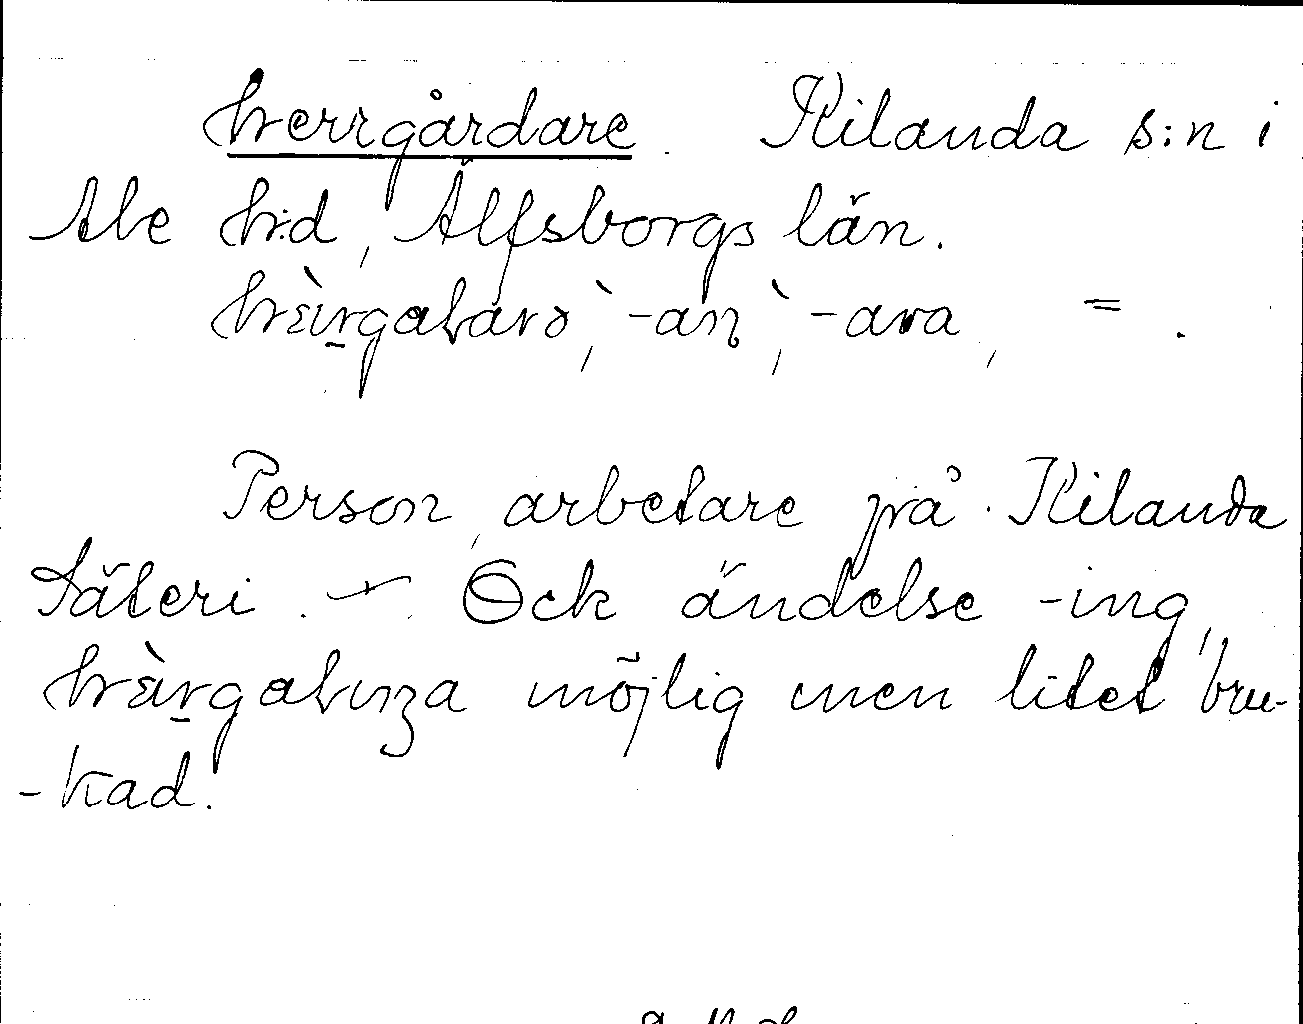 herrgårdare. Kilanda s:n i
Ale h:d, Älfsborgs län.
-an, -ara, = .
Person, arbetare på Kilanda
säteri. — Ock ändelse -ing,
möjlig men litet bru-
-kad.